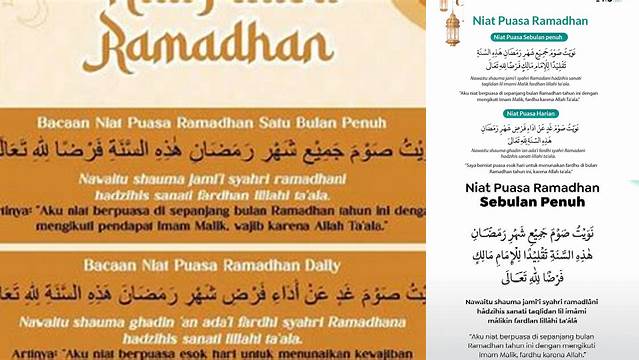 Ramadhan
Bacaan Niat Puasa Ramadhan Satu Bulan Penuh
صَوْمَ جَمِيْعِ شَهْرِ رَمَضَانِ هٰذِهِ السَّنَةِ فَرْضًا لِلّٰهِ تَعَالَى
Nawaitu shauma jamî'i syahri ramadhani
hadzihis sanati fardhan lillahi ta'ala.
"Aku niat berpuasa di sepanjang bulan Ramadhan tahun ini
mengikuti pendapat Imam Malik, wajib karena Allah Ta'ala."
Bacaan Niat Puasa Ramadhan Daily
صَوْمَ غَدٍ عَنْ أَدَاءِ فَرْضِ شَهْرِ رَمَضَانَ هٰذِهِ السَّنَةِ لِلّٰهِ
Nawaitu shauma ghadin 'an ada'i fardhi syahri Ramadhana
hadzihis sanati lillahi ta'ala.
Artinya: "Aku niat berpuasa esok hari untuk menunaikan kewajiban
Niat Puasa Ramadhan
Niat Puasa Sebulan penuh
نَوَيْتُ صَوْمَ جَمِيْعِ شَهْرِ رَمَضَانَ هٰذِهِ السَّنَةِ
تَقْلِيْدًا لِلْإِمَامِ مَالِكٍ فَرْضًا لِلّٰهِ تَعَالَى
Nawaitu shauma jami'i syahri ramadhani hadzihis sanati
taqlidan lil imami Malik fardhan lillahi ta'ala.
"Aku niat berpuasa di sepanjang bulan Ramadhan tahun ini dengan
mengikuti Imam Malik, fardhu karena Allah Ta'ala."
Niat Puasa Harian
نَوَيْتُ صَوْمَ غَدٍ عَنْ أَدَاءِ فَرْضِ شَهْرِ رَمَضَانَ
هٰذِهِ السَّنَةِ لِلّٰهِ تَعَالَى
Nawaitu shauma ghadin 'an ada'i fardhi syahri Ramadhani
hadzihis sanati lillahi ta'ala.
"Saya berniat puasa esok hari untuk menunaikan fardhu di bulan
Ramadhan tahun ini, karena Allah ta'ala."
Niat Puasa Ramadhan
Sebulan Penuh
نَوَيْتُ صَوْمَ جَمِيْعِ شَهْرِ رَمَضَانِ
هٰذِهِ السَّنَةِ تَقْلِيْدًا لِلْإِمَامِ مَالِكٍ
فَرْضًا لِلّٰهِ تَعَالَى
Nawaitu shauma jamî'i syahri ramadlâni
hâdzihis sanati taqlîdan lil imâmi
mâlikin fardlan lillâhi ta'âlâ
"Aku niat berpuasa di sepanjang bulan
Ramadhan tahun ini dengan mengikuti
Imam Malik, fardhu karena Allah."